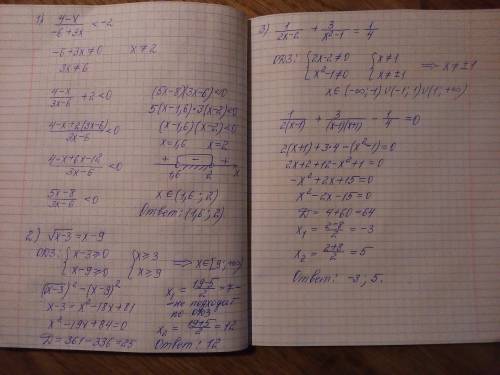 1) (4-x)/(-6+3x) < -2
-6+3x≠0 x≠2
3x≠6
(4-x)/(3x-6) + 2 < 0
(4-x+2(3x-6))/(3x-6) < 0
(4-x+6x-12)/(3x-6) < 0
(5x-8)/(3x-6) < 0
(5x-8)(3x-6)<0
5(x-1,6)·3(x-2)<0
(x-1,6)(x-2)<0
x=1,6 x=2
+ - +
1,6 2 x
x∈(1,6; 2)
Ответ: (1,6; 2).
2) √(x-3) = x-9
ОДЗ: { x-3≥0 { x≥3
{ x-9≥0 { x≥9 => x∈[9;+∞)
(√(x-3))² = (x-9)²
x-3=x²-18x+81
x²-19x+84=0
D=361-336=25
x₁ = (19-5)/2 = 7 -
- не подходит
по ОДЗ
x₂ = (19+5)/2 = 12
Ответ: 12
3) 1/(2x-2) + 3/(x²-1) = 1/4
ОДЗ: { 2x-2≠0 { x≠1
{ x²-1≠0 { x≠±1 => x≠±1
x∈(-∞;-1)∪(-1;1)∪(1;+∞)
1/(2(x-1)) + 3/((x-1)(x+1)) - 1/4 = 0
2(x+1)+3·4-(x²-1)=0
2x+2+12-x²+1=0
-x²+2x+15=0
x²-2x-15=0
D=4+60=64
x₁ = (2-8)/2 = -3
x₂ = (2+8)/2 = 5
Ответ: -3; 5.